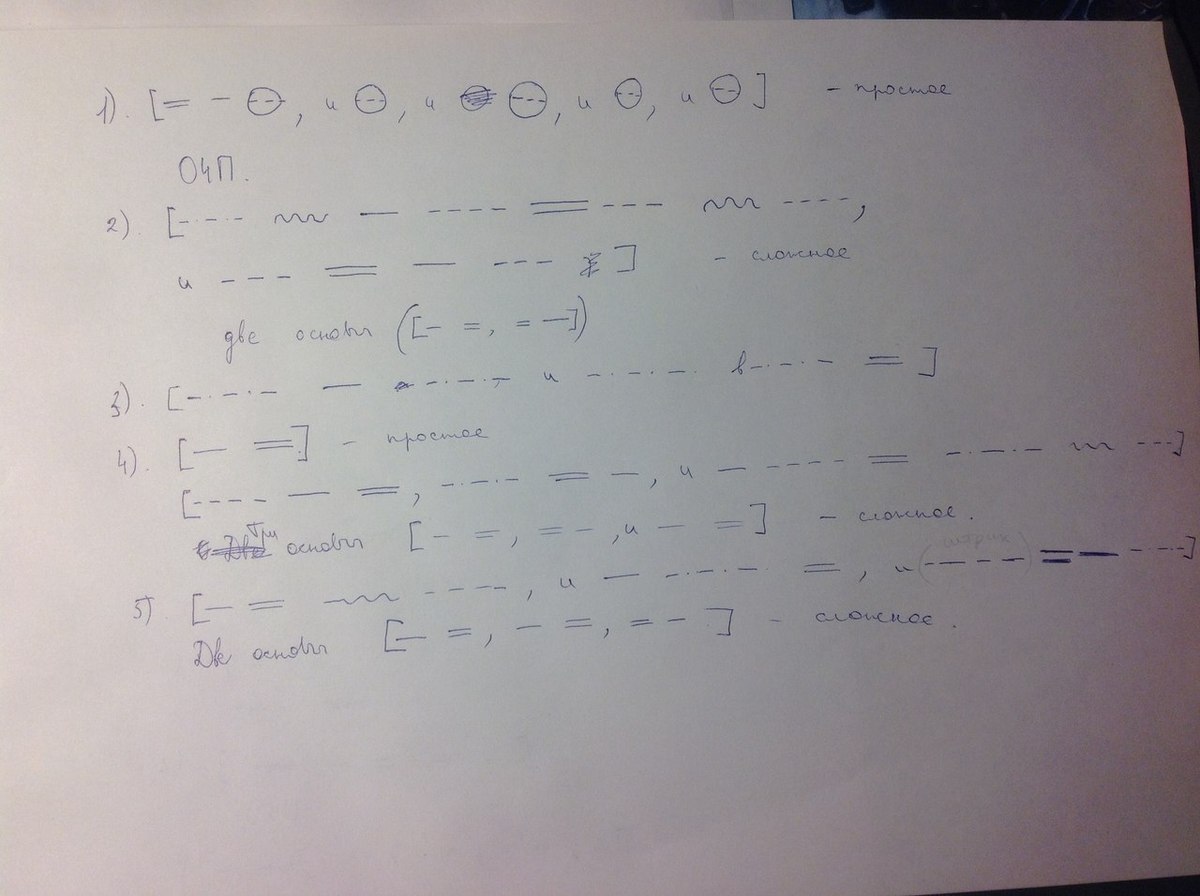 1). [= - (--), и (--), и (---), и (--), и (--)] - простое
ОЧП.
2). [-·-·- ~~~ — ---- = --- ~~~ ----,
и ---- = — --- ] - сложное
две основы ([- =, = —])
3). [-·-·- — -·-·-·- и -·-·-· в-·-·- = ]
4). [— =] - простое
[---- — =, -·-·- = —, и — ---- = -·-·- ~~ ---]
Три основы [- =, = -, и — =] - сложное.
5) [— = ~~~ ----, и — -·-·-·- =, и (---- ) = — -·-·-]
Две основы [— =, - =, = - ] - сложное.